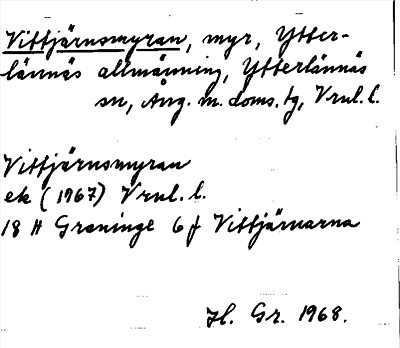 Vittjärnsmyran, myr, Ytter-
lännäs allmänning, Ytterlännäs
sn, Ång. m. doms. tg, Vrnl. l.
Vittjärnsmyran
ek (1967) Vrnl. l.
18 H Graninge 6 f Vittjärnarna
Hl. Gr. 1968.